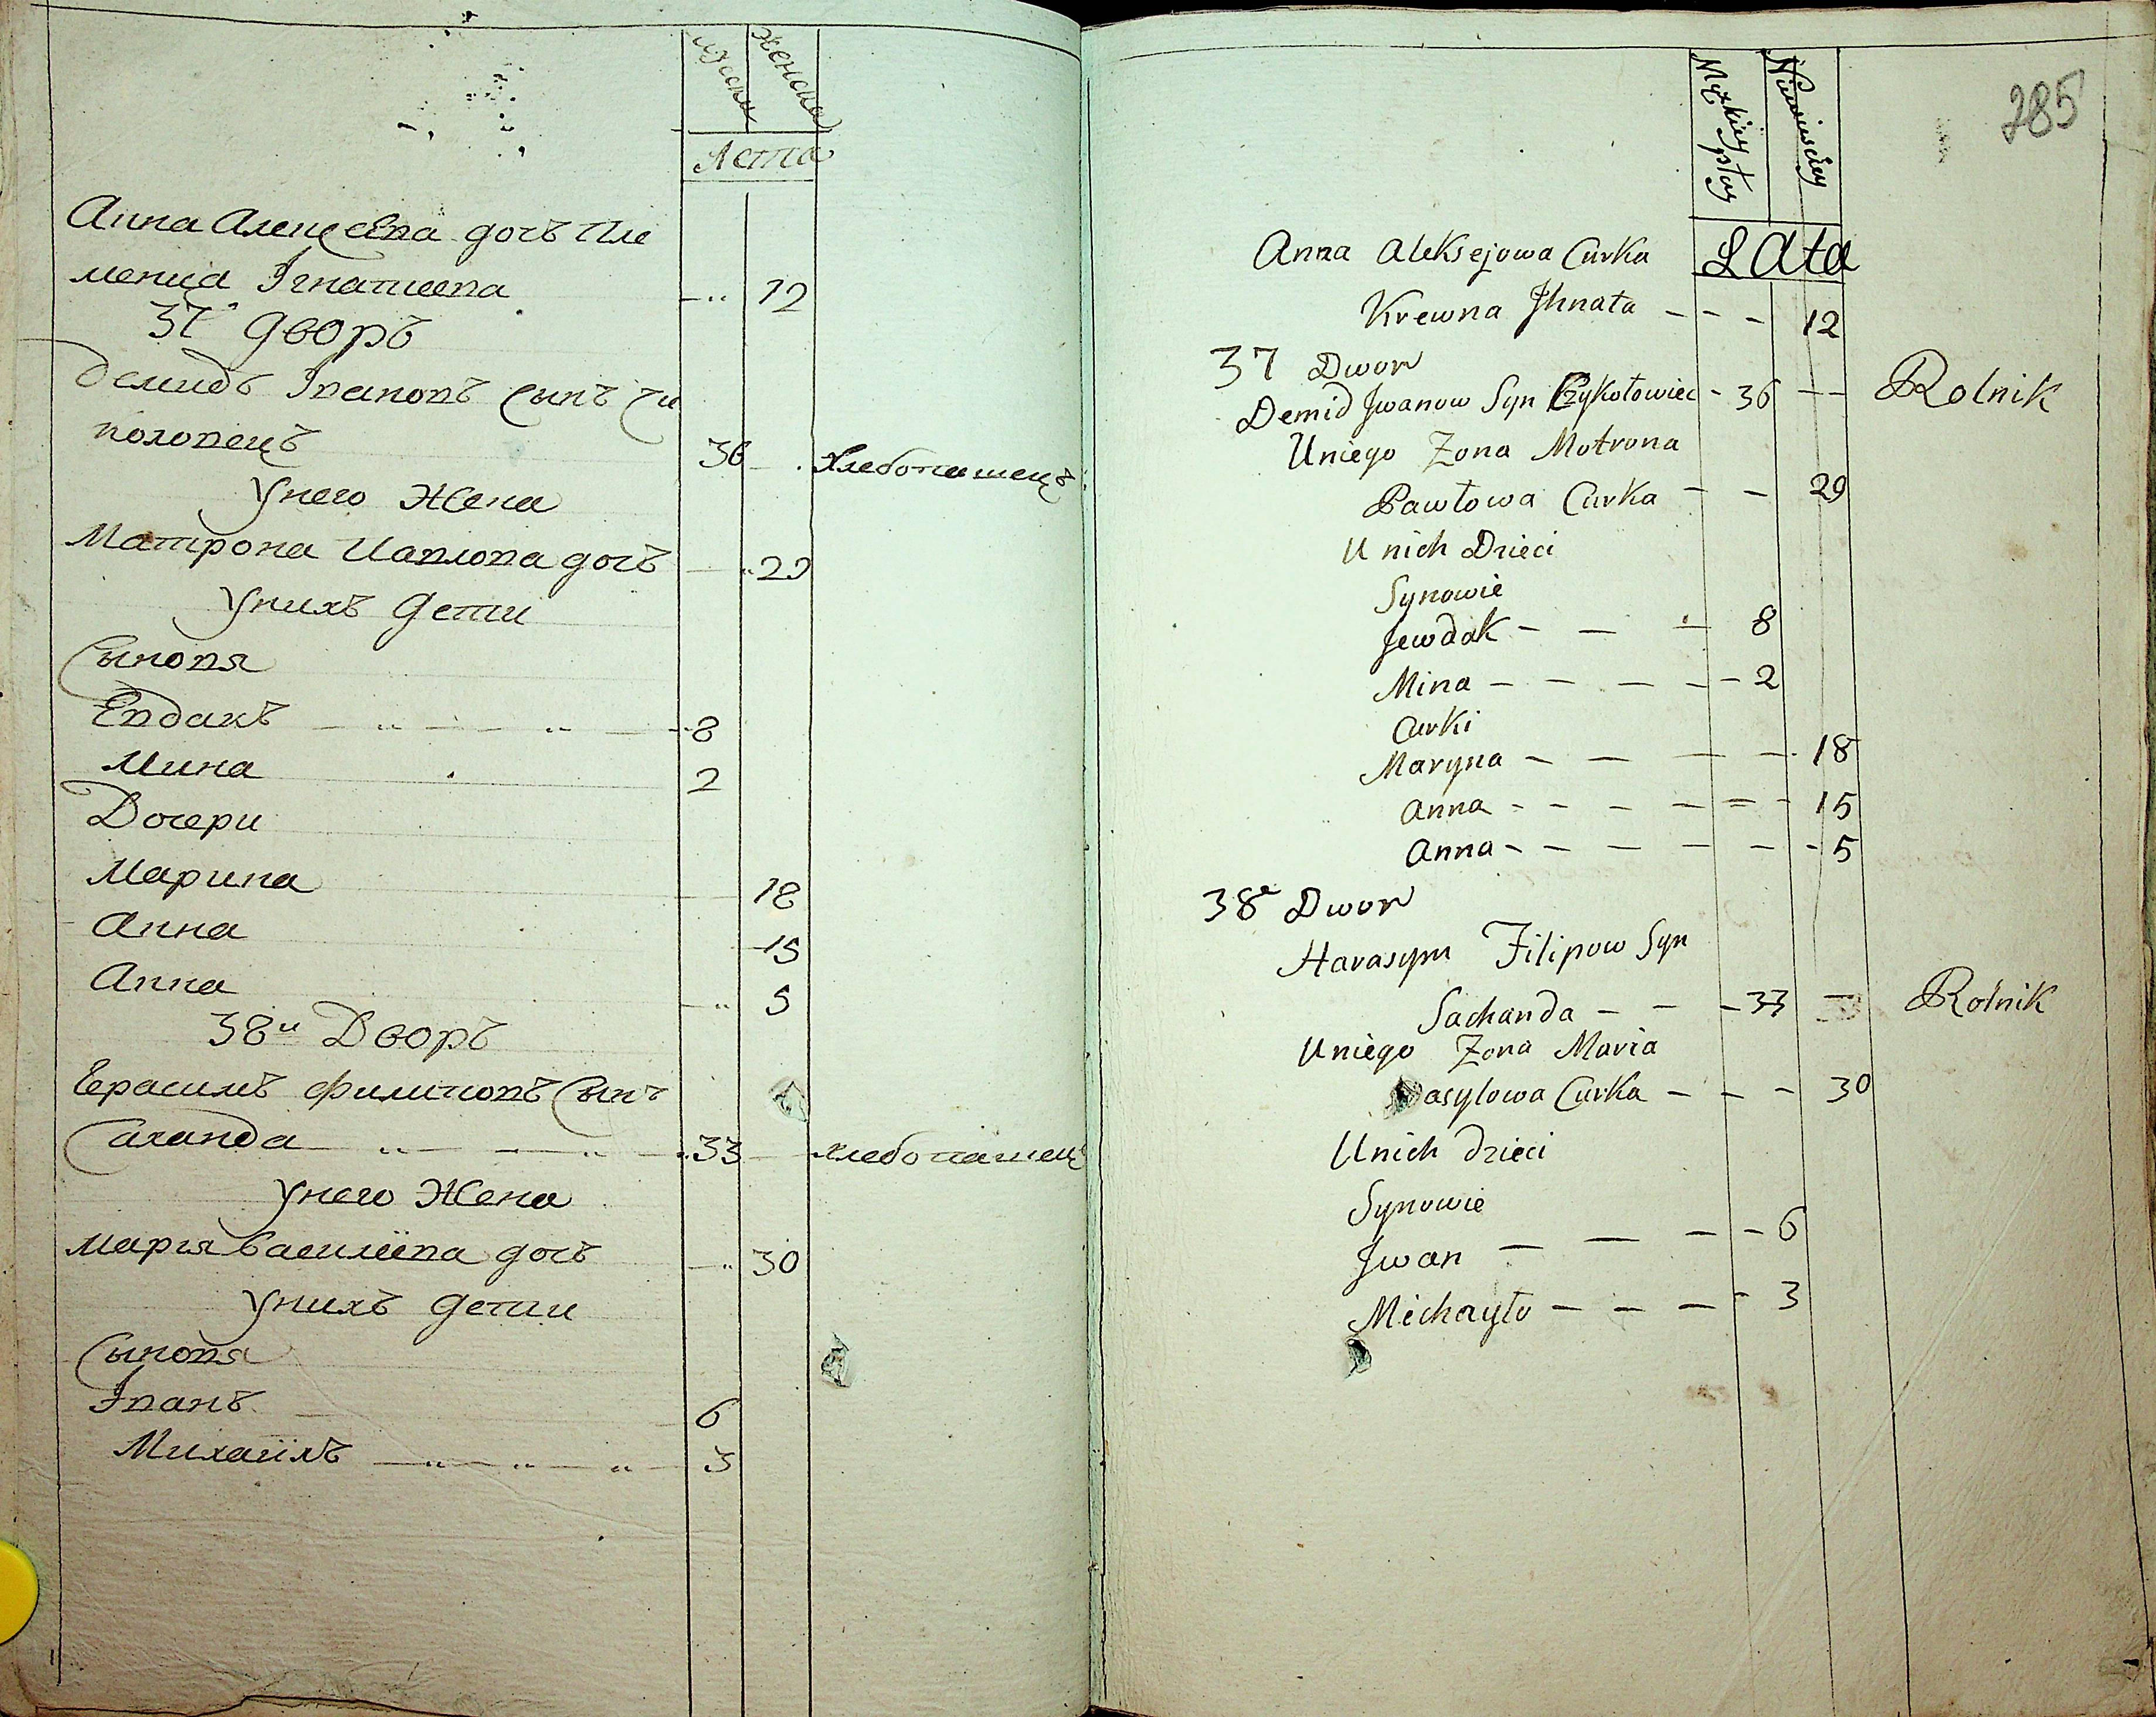 мужеска
женска
Лета
Анна Алексеева дочъ пле
меница Iгнатиева
12
37й дворъ
Демидъ Iвановъ сынъ Чи
коловецъ
36
Хлебопашецъ
Унего Жена
Матрона Павлова дочъ
29
Унихъ дети
Сыновя
Евдакъ
8
Мина
2
Дочери
Марина
18
Анна
15
Анна
5
38й Дворъ
Герасимъ Филиповъ Сынъ
Саханда
33
хлебопашецъ
Унего Жена
Мария Василiева дочъ
30
Унихъ дети
Сыновя
Iванъ
6
Михаилъ
3
285
Męzkiey płcy
Niewiesciey
LAta
Anna Aleksejowa Curka
Krewna Jhnata - - - 12
37 Dwor
Demid Jwanow Syn Czykołowiec - 36 - - Rolnik
Uniego Zona Motrona
Pawłowa Curka - - 29
U nich Dzieci
Synowie
Jewdak - - - 8
Mina - - - - - 2
Curki
Maryna - - - - 18
Anna - - - - - - 15
Anna - - - - - - 5
38e Dwor
Harasym Filipow Syn
Sachanda - - - 33 - Rolnik
Uniego Zona Maria
Wasylowa Curka - - - 30
Unich dzieci
Synowie
Jwan - - - - 6
Michayło - - - - 3